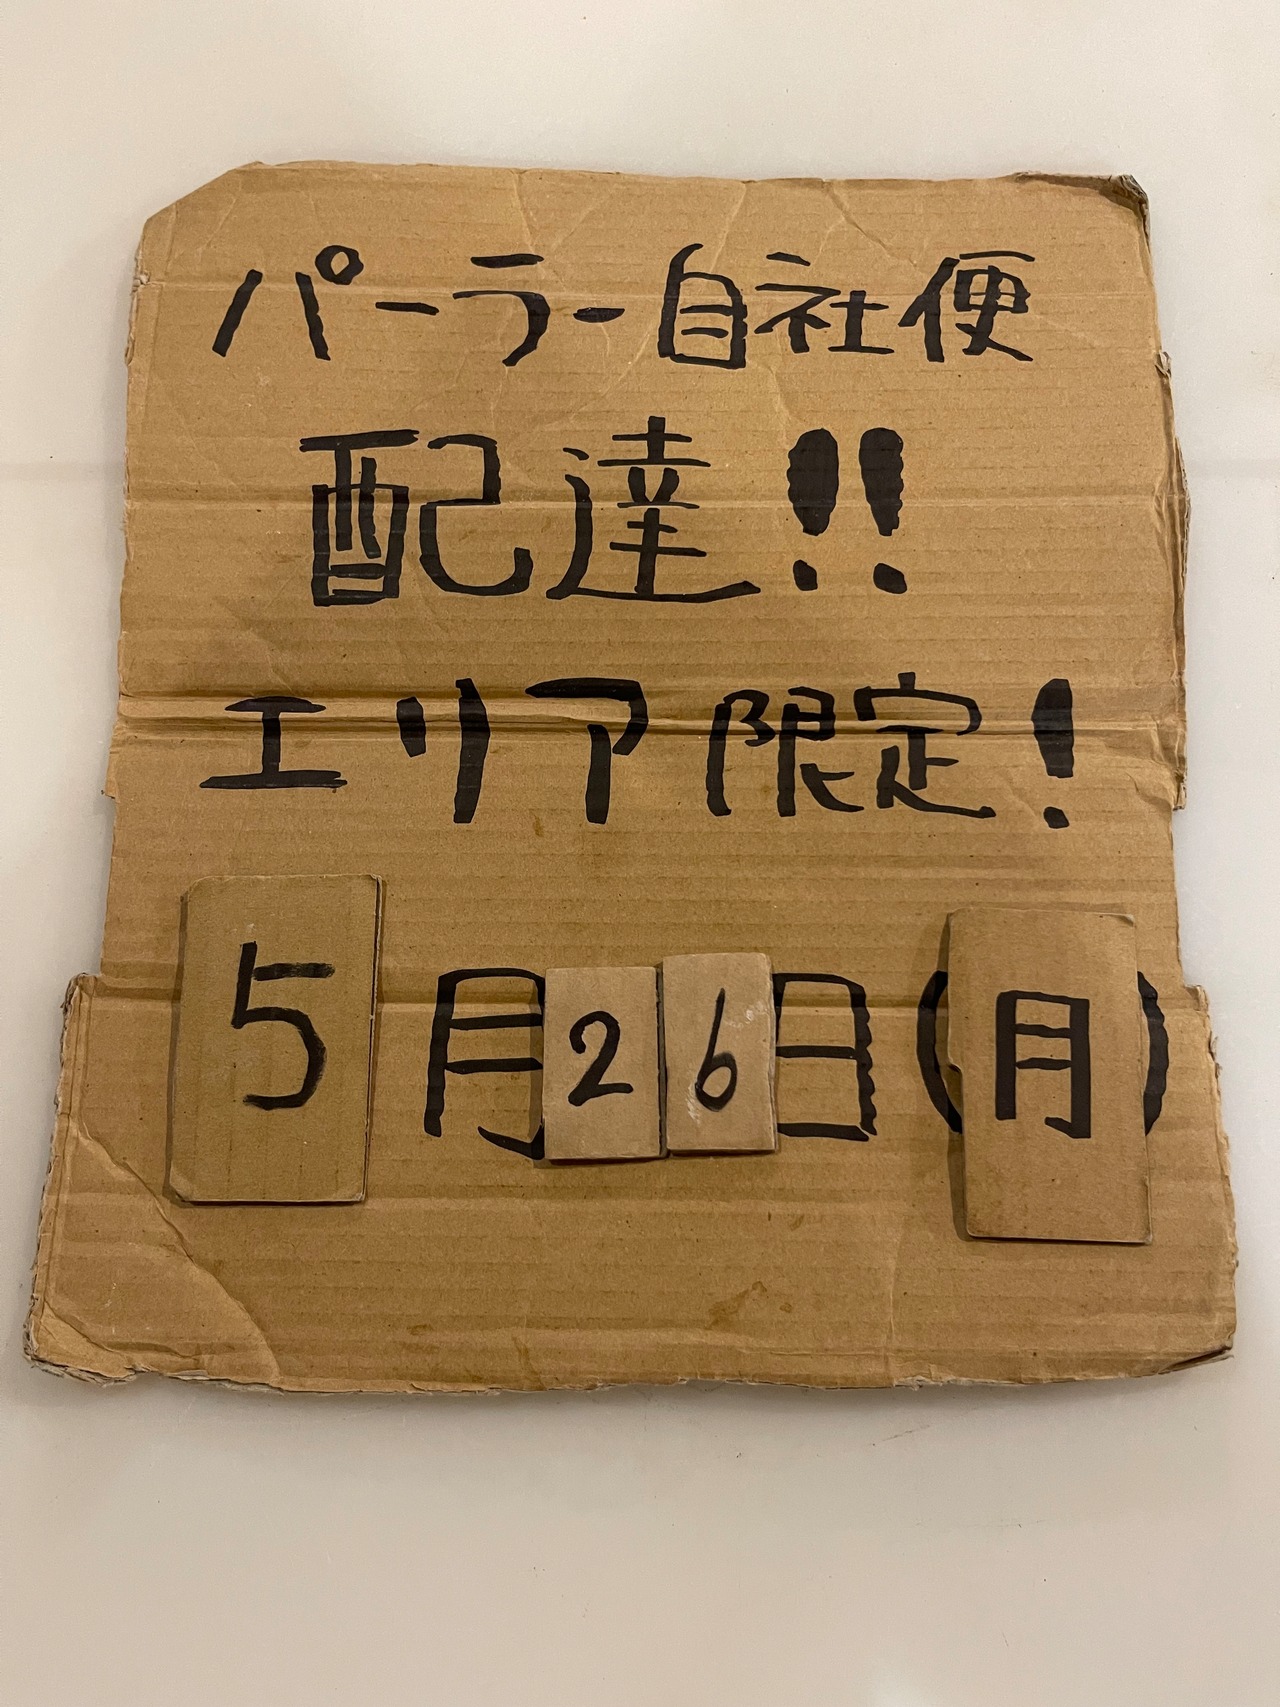 パーラー自社便
配達!!
エリア限定!
5月26日(月)